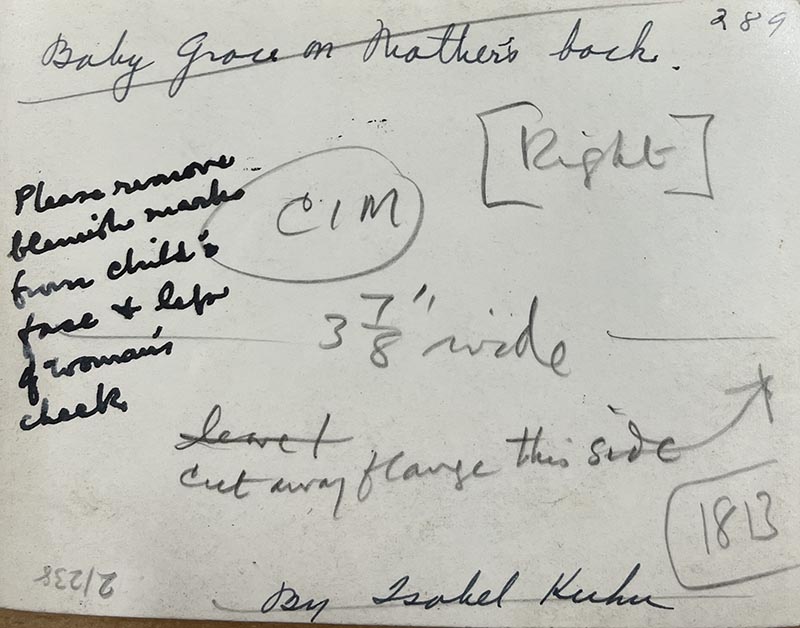 289
Baby Grace on Mother's back.
[Right]
CIM
Please remove
blemish marks
from child's
face & left
of woman's
cheek
3 7/8" wide
cut away flange this side
181B
2/238
By Isobel Kuhn